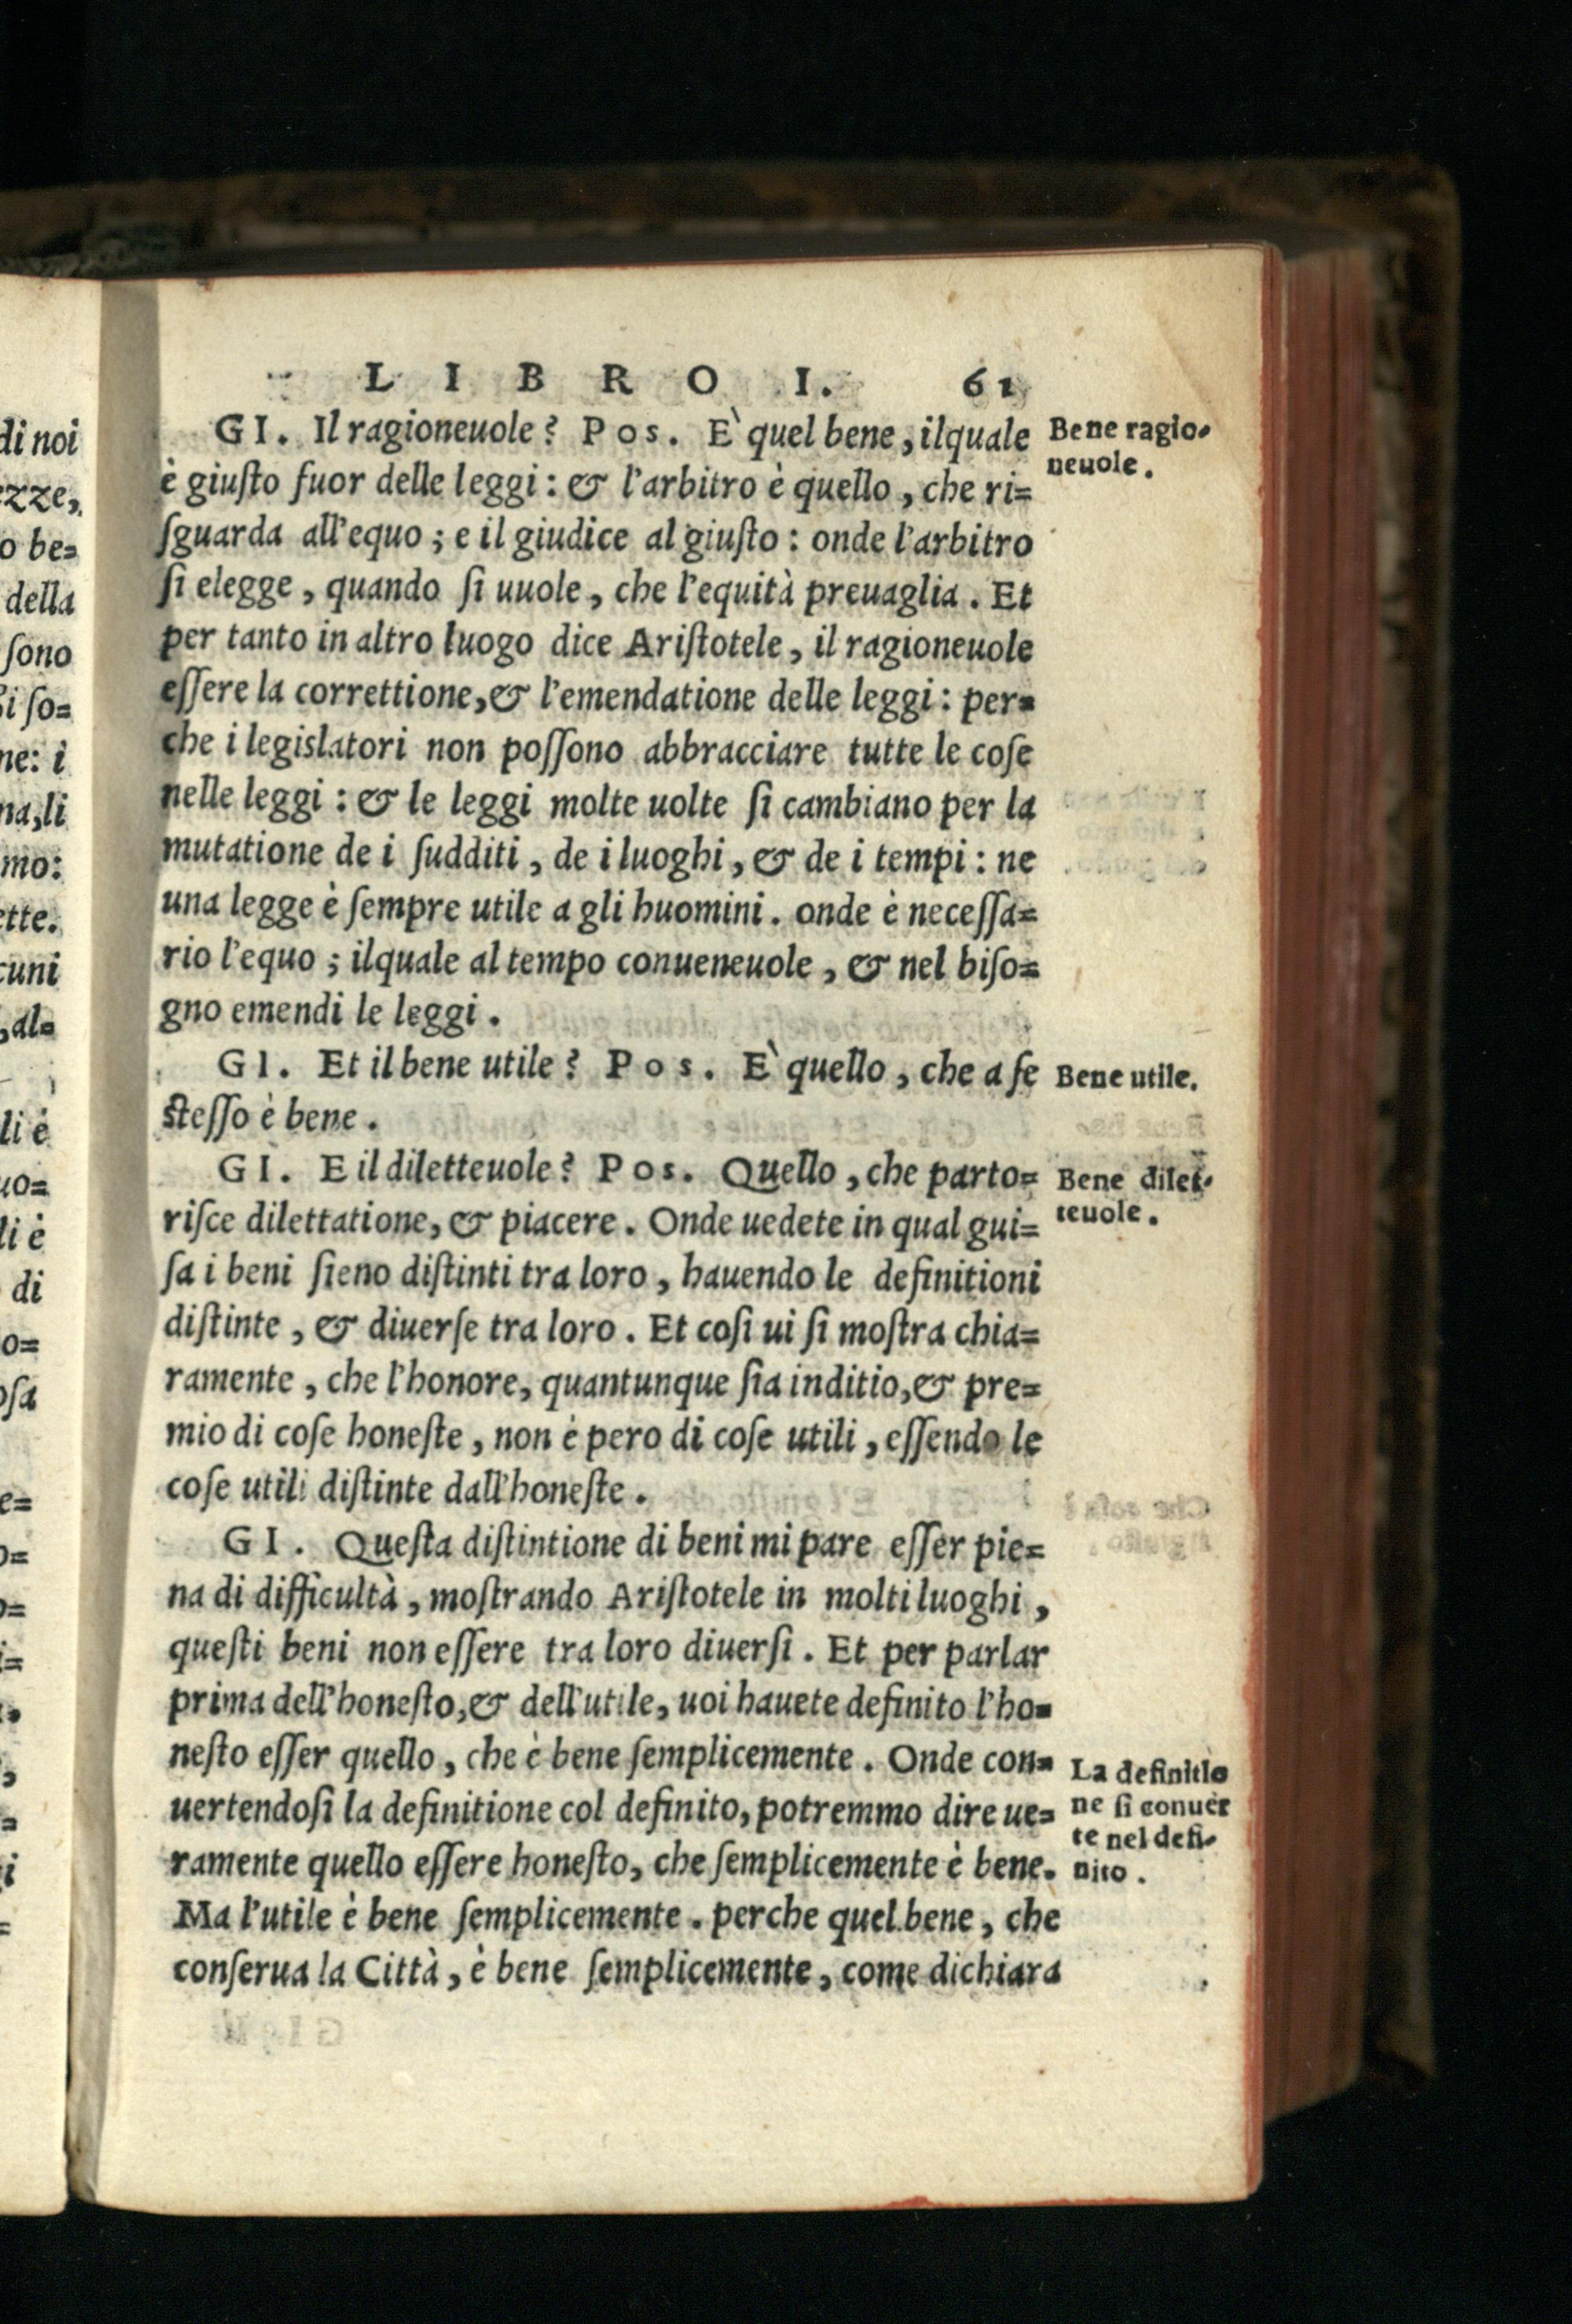 LIBRO I. 61
GI. Il ragioneuole? Pos. È quel bene, ilquale
è giuſto fuor delle leggi: & l'arbitro è quello, che ri=
ſguarda all'equo; e il giudice al giuſto: onde l'arbitro
ſi elegge, quando ſi uuole, che l'equità preuaglia. Et
per tanto in altro luogo dice Ariſtotele, il ragioneuole
eſſere la correttione, & l'emendatione delle leggi: per=
che i legislatori non poſſono abbracciare tutte le coſe
nelle leggi: & le leggi molte uolte ſi cambiano per la
mutatione de i ſudditi, de i luoghi, & de i tempi: ne
una legge è ſempre utile a gli huomini. onde è neceſſa=
rio l'equo; ilquale al tempo conueneuole, & nel biſo=
gno emendi le leggi.
GI. Et il bene utile? Pos. È quello, che a ſe
ſteſſo è bene.
GI. E il diletteuole? Pos. Quello, che parto=
riſce dilettatione, & piacere. Onde uedete in qual gui=
ſa i beni ſieno diſtinti tra loro, hauendo le definitioni
diſtinte, & diuerſe tra loro. Et coſi ui ſi moſtra chia=
ramente, che l'honore, quantunque ſia inditio, & pre=
mio di coſe honeſte, non è pero di coſe utili, eſſendo le
coſe utili diſtinte dall'honeſte.
GI. Queſta diſtintione di beni mi pare eſſer pie=
na di difficultà, moſtrando Ariſtotele in molti luoghi,
queſti beni non eſſere tra loro diuerſi. Et per parlar
prima dell'honeſto, & dell'utile, uoi hauete definito l'ho=
neſto eſſer quello, che è bene ſemplicemente. Onde con=
uertendoſi la definitione col definito, potremmo dire ue=
ramente quello eſſere honeſto, che ſemplicemente è bene.
Ma l'utile è bene ſemplicemente. perche quel bene, che
conſerua la Città, è bene ſemplicemente, come dichiara
Bene ragio-
neuole.
Bene utile.
Bene dilet-
teuole.
La definitio
ne ſi conuer
te nel defi-
nito.
di noi
ezze,
o be=
della
ſono
i ſo=
ne: i
na, li
mo:
ette.
cuni
, al=
li è
uo=
li è
di
o=
oſa
e=
o=
o=
i=